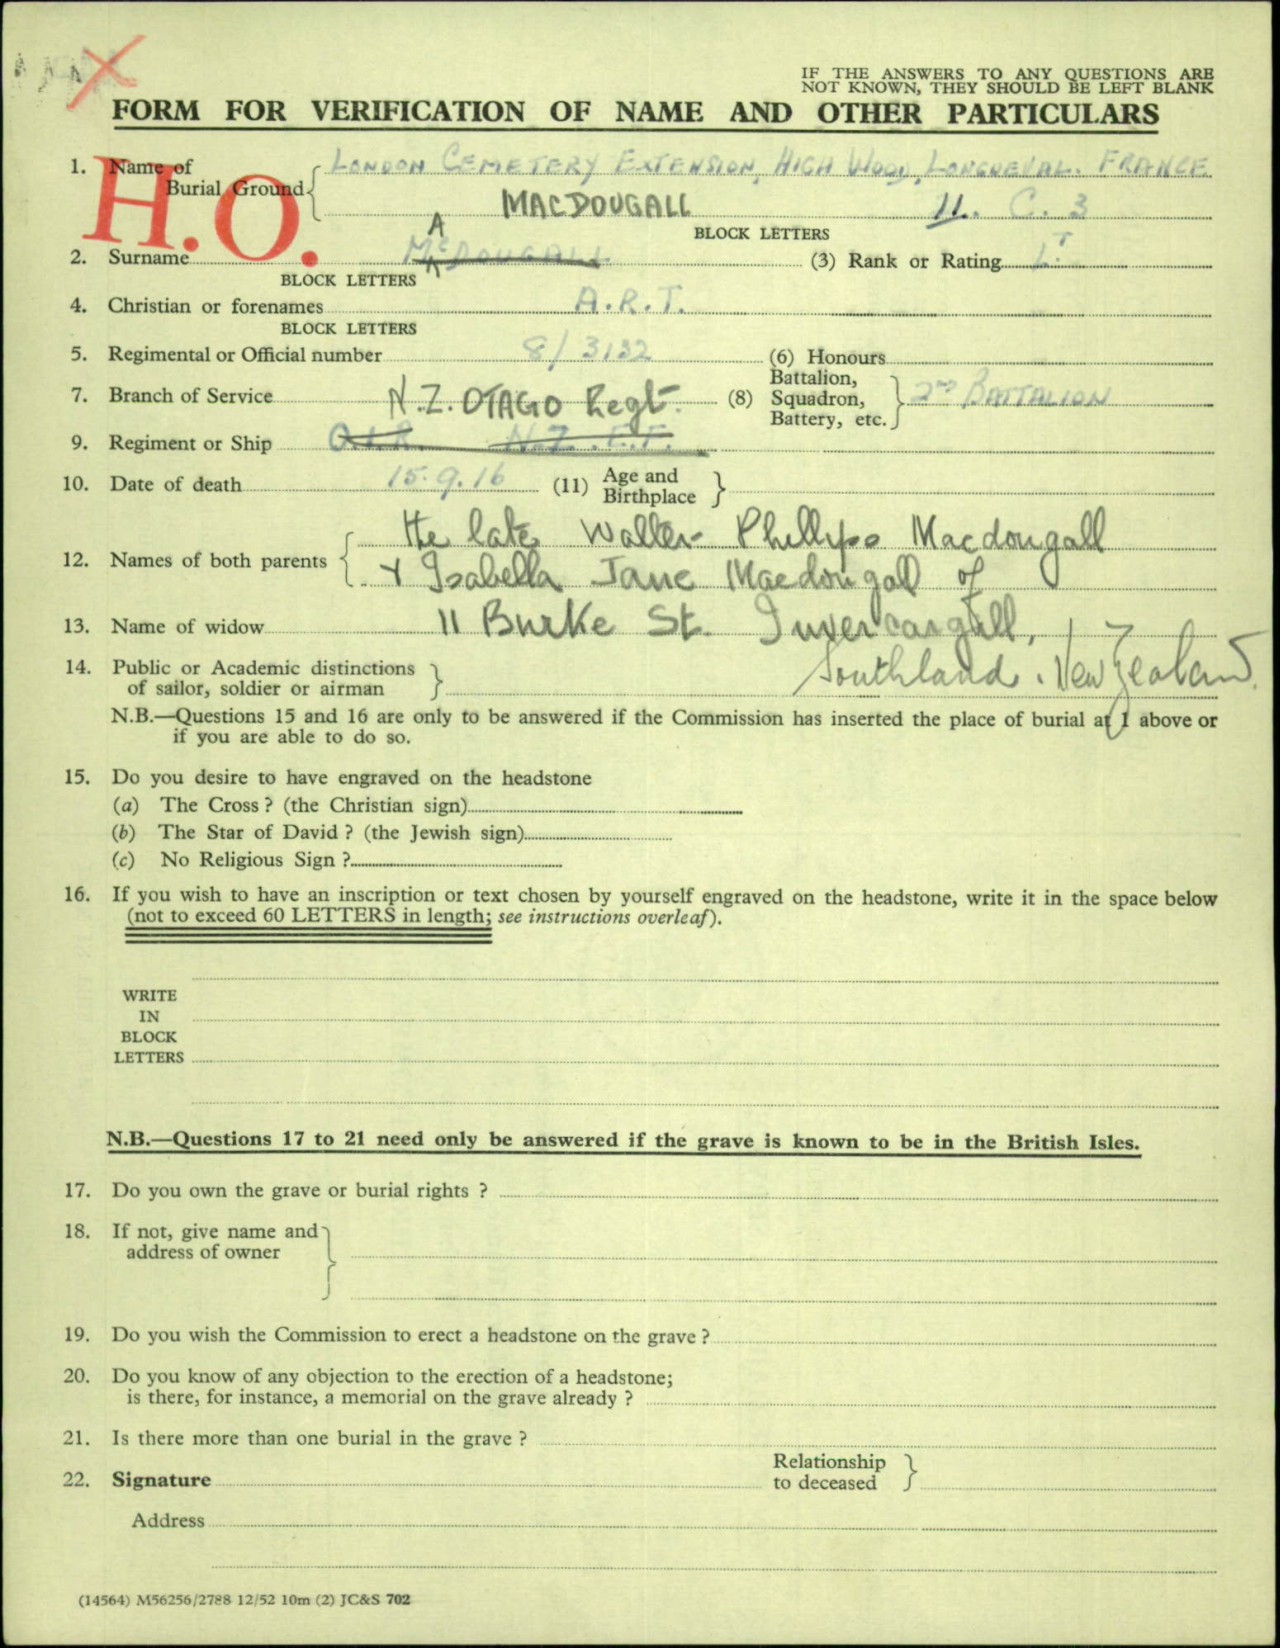 IF THE ANSWERS TO ANY QUESTIONS ARE
NOT KNOWN, THEY SHOULD BE LEFT BLANK
FORM FOR VERIFICATION OF NAME AND OTHER PARTICULARS
H.O.
1. Name of Burial Ground LONDON CEMETERY EXTENSION, HIGH WOOD, LONGUEVAL. FRANCE
MACDOUGALL 11. C. 3
BLOCK LETTERS
2. Surname McDOUGALL A (3) Rank or Rating LT
BLOCK LETTERS
4. Christian or forenames A.R.T.
BLOCK LETTERS
5. Regimental or Official number 8/3132 (6) Honours
7. Branch of Service N.Z. OTAGO Regt. (8) Battalion, Squadron, Battery, etc. 2ND BATTALION
9. Regiment or Ship O.I.R. N.Z.E.F.
10. Date of death 15.9.16 (11) Age and Birthplace
12. Names of both parents the late Walter Phillips Macdougall
& Isabella Jane Macdougall of
13. Name of widow 11 Burke St. Invercargill,
Southland. New Zealand.
14. Public or Academic distinctions
of sailor, soldier or airman
N.B.—Questions 15 and 16 are only to be answered if the Commission has inserted the place of burial at 1 above or
if you are able to do so.
15. Do you desire to have engraved on the headstone
(a) The Cross? (the Christian sign)
(b) The Star of David? (the Jewish sign)
(c) No Religious Sign?
16. If you wish to have an inscription or text chosen by yourself engraved on the headstone, write it in the space below
(not to exceed 60 LETTERS in length; see instructions overleaf).
WRITE
IN
BLOCK
LETTERS
N.B.—Questions 17 to 21 need only be answered if the grave is known to be in the British Isles.
17. Do you own the grave or burial rights ?
18. If not, give name and
address of owner
19. Do you wish the Commission to erect a headstone on the grave ?
20. Do you know of any objection to the erection of a headstone;
is there, for instance, a memorial on the grave already ?
21. Is there more than one burial in the grave ?
22. Signature Relationship to deceased
Address
(14564) M56256/2788 12/52 10m (2) JC&S 702